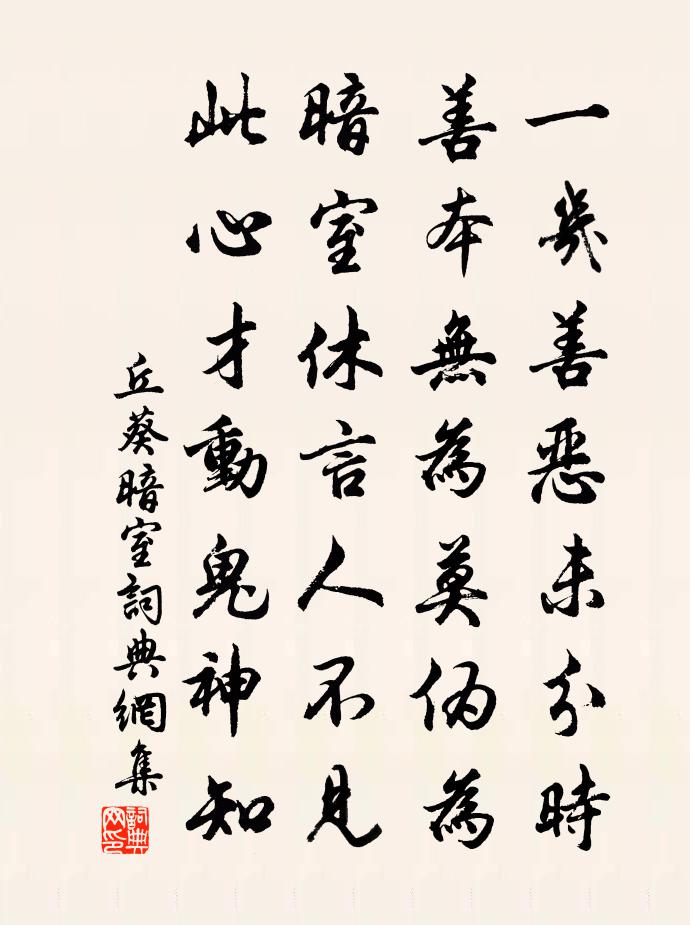 一幾善惡未分時
善本無為莫偽為
暗室休言人不見
此心才動鬼神知
丘葵暗室詞典網集
詞典網印